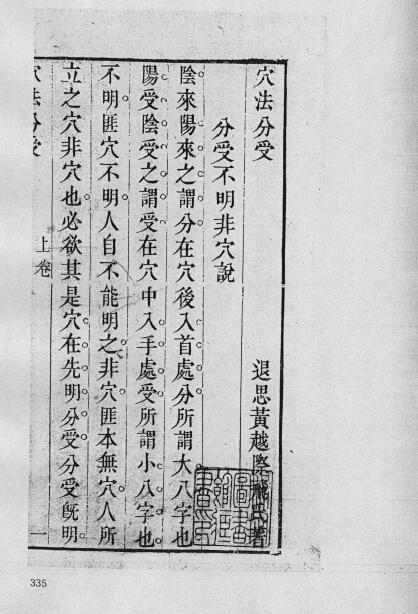 穴法分受
退思黃越際飛氏著
分受不明非穴說
陰來陽來之謂分在穴後入首處分所謂大八字也
陽受陰受之謂受在穴中入手處受所謂小八字也
不明匪穴不明人自不能明之非穴匪本無穴人所
立之穴非穴也必欲其是穴在先明分受分受旣明
穴法分受
上卷
一
335